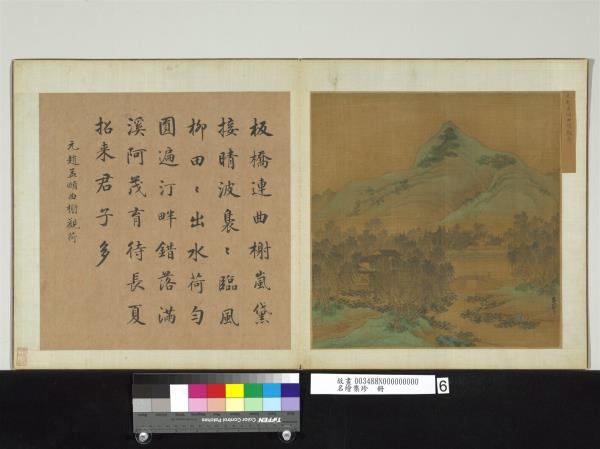 板橋連曲榭嵐黛
接晴波裊〻臨風
柳田〻出水荷勻
圓遍汀畔錯落滿
溪阿茂育待長夏
招来君子多
元趙孟頫曲榭觀荷
故畫 003488N000000000
名繪集珍 冊
6
TIFFEN Color Control Patches